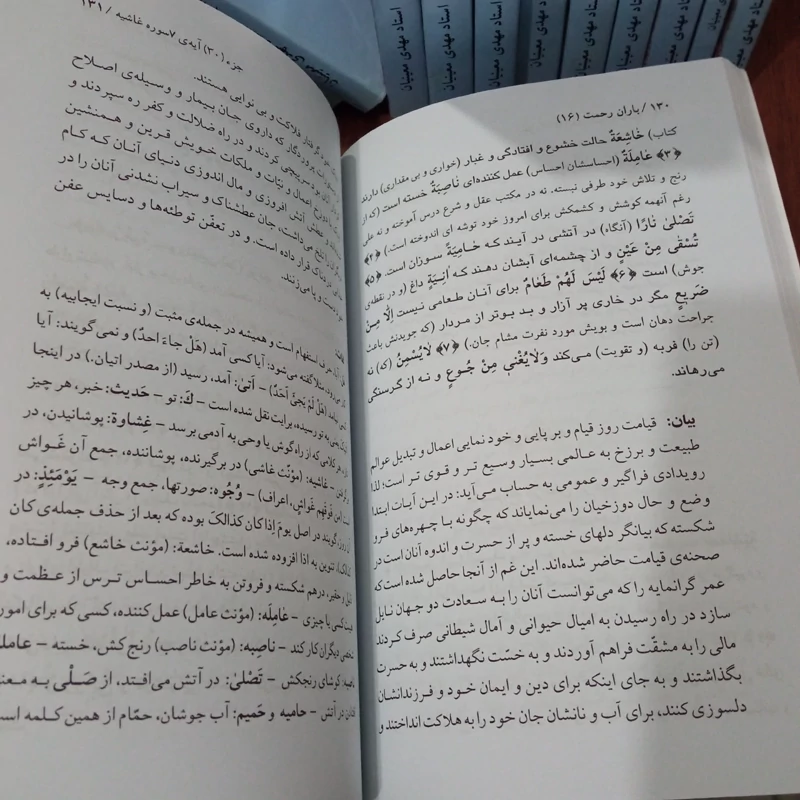 استاد مهدی معینیان
استاد مهدی معینیان
استاد مهدی معینیان
استاد مهدی معینیان
۱۳۰ / باران رحمت (۱۶)
کتاب) خَاشِعَةٌ حالت خشوع و افتادگی و غبار (خواری و بی مقداری) دارند
﴿۳﴾ عَامِلَةٌ (احساسشان احساس) عمل کننده‌ای نَاصِبَةٌ خسته است (که از
رنج و تلاش خود طرفی نبسته. نه در مکتب عقل و شرع درس آموخته و نه علی
رغم آنهمه کوشش و کشمکش برای امروز خود توشه ای اندوخته است.) ﴿۴﴾
تَصْلیٰ نٰارًا (آنگاه) در آتشی در آیند که حَامِیَةً سوزان است. ﴿۵﴾
تُسْقٰی مِنْ عَیْنٍ و از چشمه‌ای آبشان دهند که آنِیَةٍ داغ (و در نقطه‌ی
جوش) است ﴿۶﴾ لَیْسَ لَهُمْ طَعٰامٌ برای آنان طعامی نیست اِلّا مِنْ
ضَرِیعٍ مگر در خاری پر آزار و بد بوتر از مردار (که جویدنش باعث
جراحت دهان است و بویش مورد نفرت مشام جان.) ﴿۷﴾ لایُسْمِنُ (که) نه
(تن را) فربه (و تقویت) می‌کند وَلایُغْنی مِنْ جُوعٍ و نه از گرسنگی
می‌رهاند.
بیان: قیامت روز قیام و بر پایی و خود نمایی اعمال و تبدیل عوالم
طبیعت و برزخ به عالمی بسیار وسیع تر و قوی تر است؛ لذا
رویدادی فراگیر و عمومی به حساب می‌آید: در این آیات ابتدا
وضع و حال دوزخیان را می‌نمایاند که چگونه با چهره‌های فرو
شکسته که بیانگر دلهای خسته و پر از حسرت و اندوه آنان است در
صحنه‌ی قیامت حاضر شده‌اند. این غم از آنجا حاصل شده است که
عمر گرانمایه را که می‌توانست آنان را به سعادت دو جهان نایل
سازد در راه رسیدن به امیال حیوانی و آمال شیطانی صرف کردند
مالی را به مشقّت فراهم آوردند و به خسّت نگهداشتند و به حسرت
بگذاشتند و به جای اینکه برای دین و ایمان خود و فرزندانشان
دلسوزی کنند، برای آب و نانشان جان خود را به هلاکت انداختند و
جزء (۳۰) آیه‌ی ۷ سوره غاشیه / ۱۳۱
خود گرفتار فلاکت و بی نوایی هستند.
پروردگار که داروی جان بیمار و وسیله‌ی اصلاح
سرپیچی کردند و در راه ضلالت و کفر ره سپردند و
اعمال و نیّات و ملکات خویش قرین و همنشین
آتش افروزی و مال اندوزی دنیای آنان که کام
تلخ می‌داشت، جان عطشناک و سیراب نشدنی آنان را در
قرار داده است. و در تعفّن توطئه‌ها و دسایس عفن
دست و پا می‌زنند.
حرف استفهام است و همیشه در جمله‌ی مثبت (و نسبت ایجابیه) به
مثلا گفته می‌شود: آیا کسی آمد (هَلْ جاءَ احدٌ) و نمی‌گویند: آیا
(هَلْ لَمْ یَجِئْ أَحَدٌ) – أتیٰ: آمد، رسید (از مصدر اتیان.) در اینجا
رسیده، برایت نقل شده است – كَ: تو – حَدیث: خبر، هر چیز
هر کلامی که از راه گوش یا وحی به آدمی برسد – غِشاوة: پوشانیدن، در
غاشیه: (مؤنّث غاشی) در برگیرنده، پوشاننده، جمع آن غَواش
فوقهم غَواشٍ، اعراف) – وُجُوه: صورتها، جمع وجه – یَوْمَئِذٍ: در
در اصل یومَ اِذا کان کذالک بوده که بعد از حذف جمله‌ی کان
تنوین به اذا افزوده شده است. خاشعة: (مؤنث خاشع) فرو افتاده،
و حقیر، درهم شکسته و فروتن به خاطر احساس ترس از عظمت و
کسی یا چیزی – عَامِلَه: (مؤنث عامل) عمل کننده، کسی که برای امور
شخصی دیگران کار کند – ناصِبه: (مؤنث ناصب) رنج کش، خسته – عامله
ناصبه: کوشای رنجکش – تَصْلیٰ: در آتش می‌افتد، از صَلْی به معنی
در آتش – حامیه و حَمیم: آب جوشان، حمّام از همین کلمه است